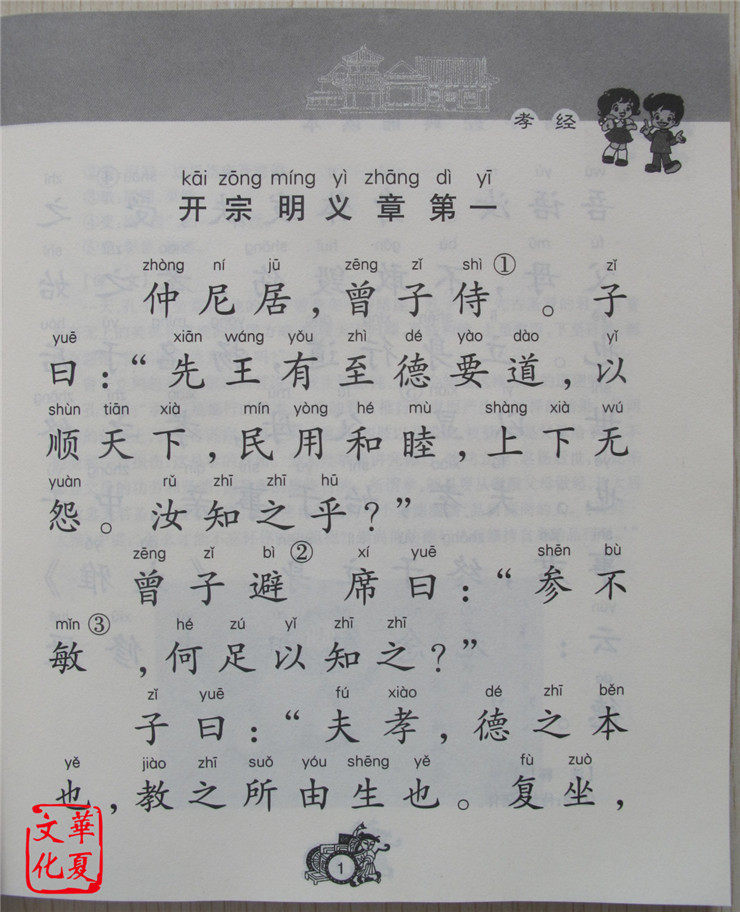 孝经
kāi zōng míng yì zhāng dì yī
开宗明义章第一
zhòng ní jū zēng zǐ shì ① zǐ
仲尼居，曾子侍。子
yuē xiān wáng yǒu zhì dé yào dào yǐ
曰：“先王有至德要道，以
shùn tiān xià mín yòng hé mù shàng xià wú
顺天下，民用和睦，上下无
yuàn rǔ zhī zhī hū
怨。汝知之乎？”
zēng zǐ bì ② xí yuē shēn bù
曾子避席曰：“参不
mǐn ③ hé zú yǐ zhī zhī
敏，何足以知之？”
zǐ yuē fú xiào dé zhī běn
子曰：“夫孝，德之本
yě jiào zhī suǒ yóu shēng yě fù zuò
也，教之所由生也。复坐，
1
華夏文化